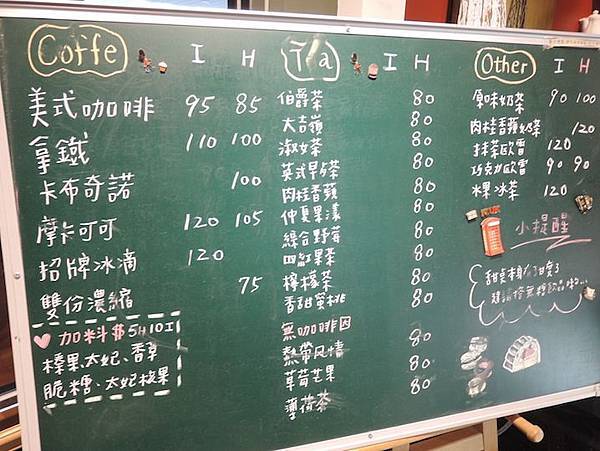 Coffe I H
美式咖啡 95 85
拿鐵 110 100
卡布奇諾 100
摩卡可可 120 105
招牌冰滴 120
雙份濃縮 75
加料 $5H10I
榛果、太妃、香草
脆糖、太妃核果
Tea I H
伯爵茶 80
大吉嶺 80
淑女茶 80
英式早茶 80
肉桂香蘋 80
仲夏果漾 80
綜合野莓 80
四紅果茶 80
檸檬茶 80
香甜蜜桃 80
無咖啡因
熱帶风情 80
草莓芒果 80
薄荷茶 80
Other I H
原味奶茶 90 100
肉桂香蘋奶茶 120
抹茶歐蕾 120
巧克力歐蕾 90 90
水果冰茶 120
小提醒
甜桌本身
建議搭無糖飲品